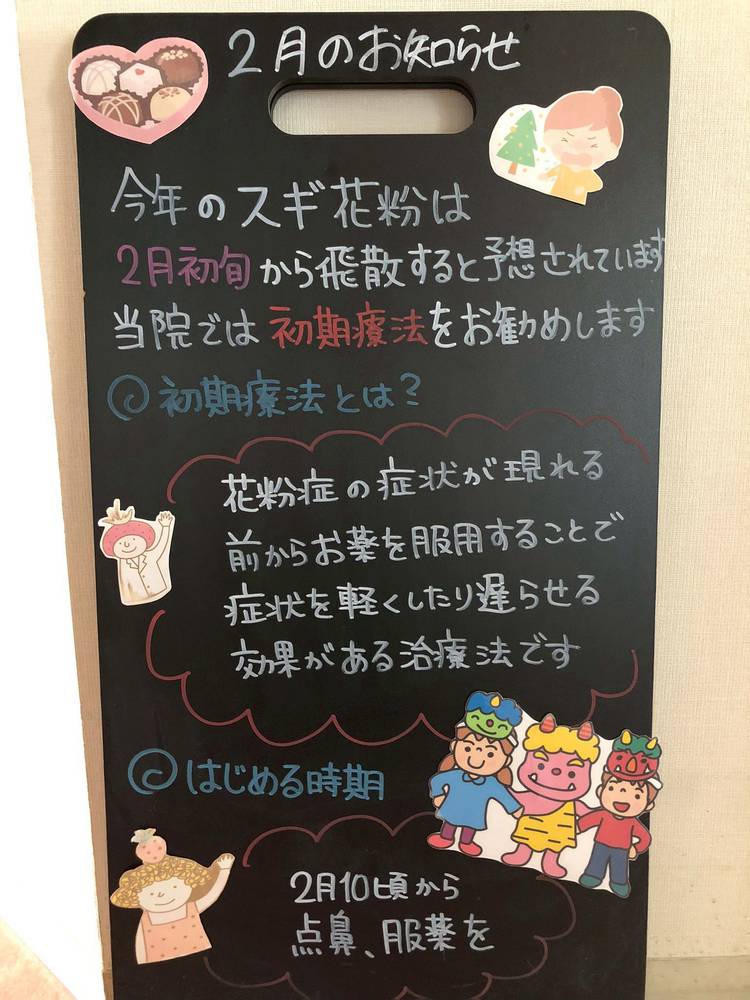 2月のお知らせ
今年のスギ花粉は
2月初旬から飛散すると予想されています
当院では初期療法をお勧めします
初期療法とは?
花粉症の症状が現れる
前からお薬を服用することで
症状を軽くしたり遅らせる
効果がある治療法です
はじめる時期
2月10頃から
点鼻、服薬を